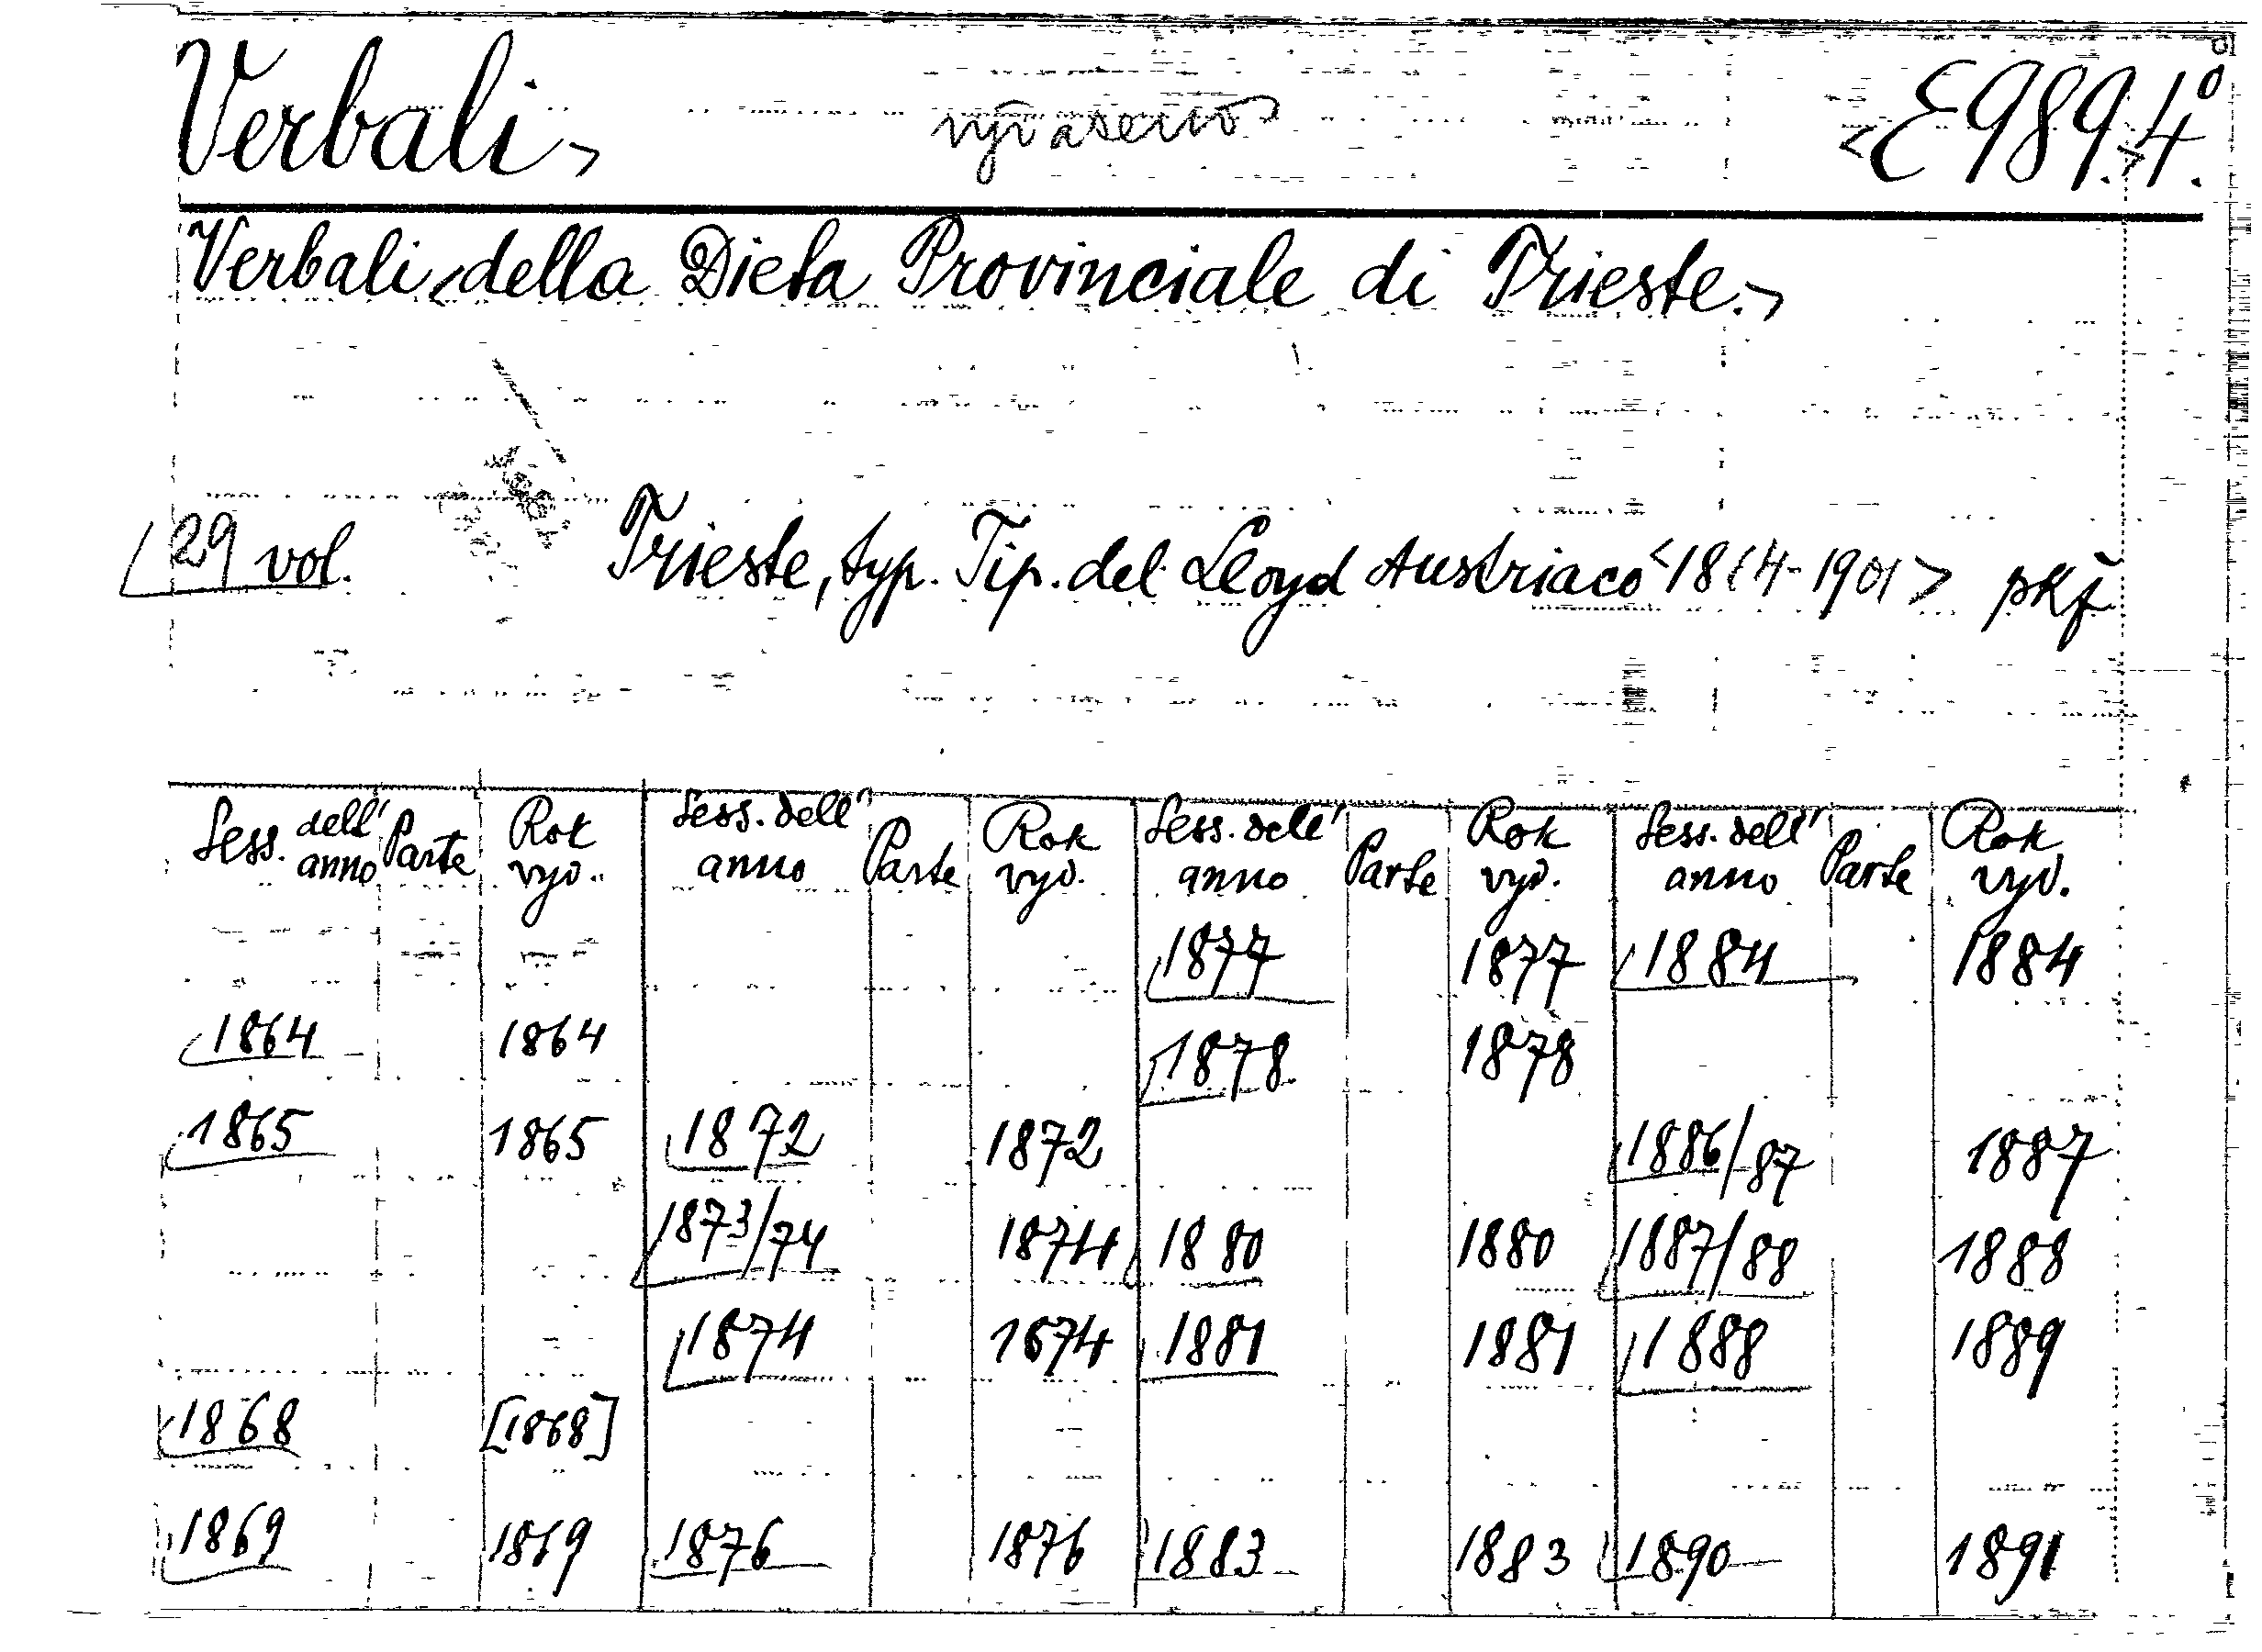 Verbali> <E989.>4°.
Verbali <della Dieta Provinciale di Trieste.>
29 vol. Trieste, typ. Tip. del Lloyd Austriaco <1864-1901> pkf
Sess. dell' anno Parte Rok vyd. Sess. dell' anno Parte Rok vyd. Sess. dell' anno Parte Rok vyd. Sess. dell' anno Parte Rok vyd.
1877 1877 1884 1884
1864 1864 1878 1878
1865 1865 1872 1872 1886/87 1887
1873/74 1874 1880 1880 1887/88 1888
1874 1874 1881 1881 1888 1889
1868 [1868]
1869 1869 1876 1876 1883 1883 1890 1891